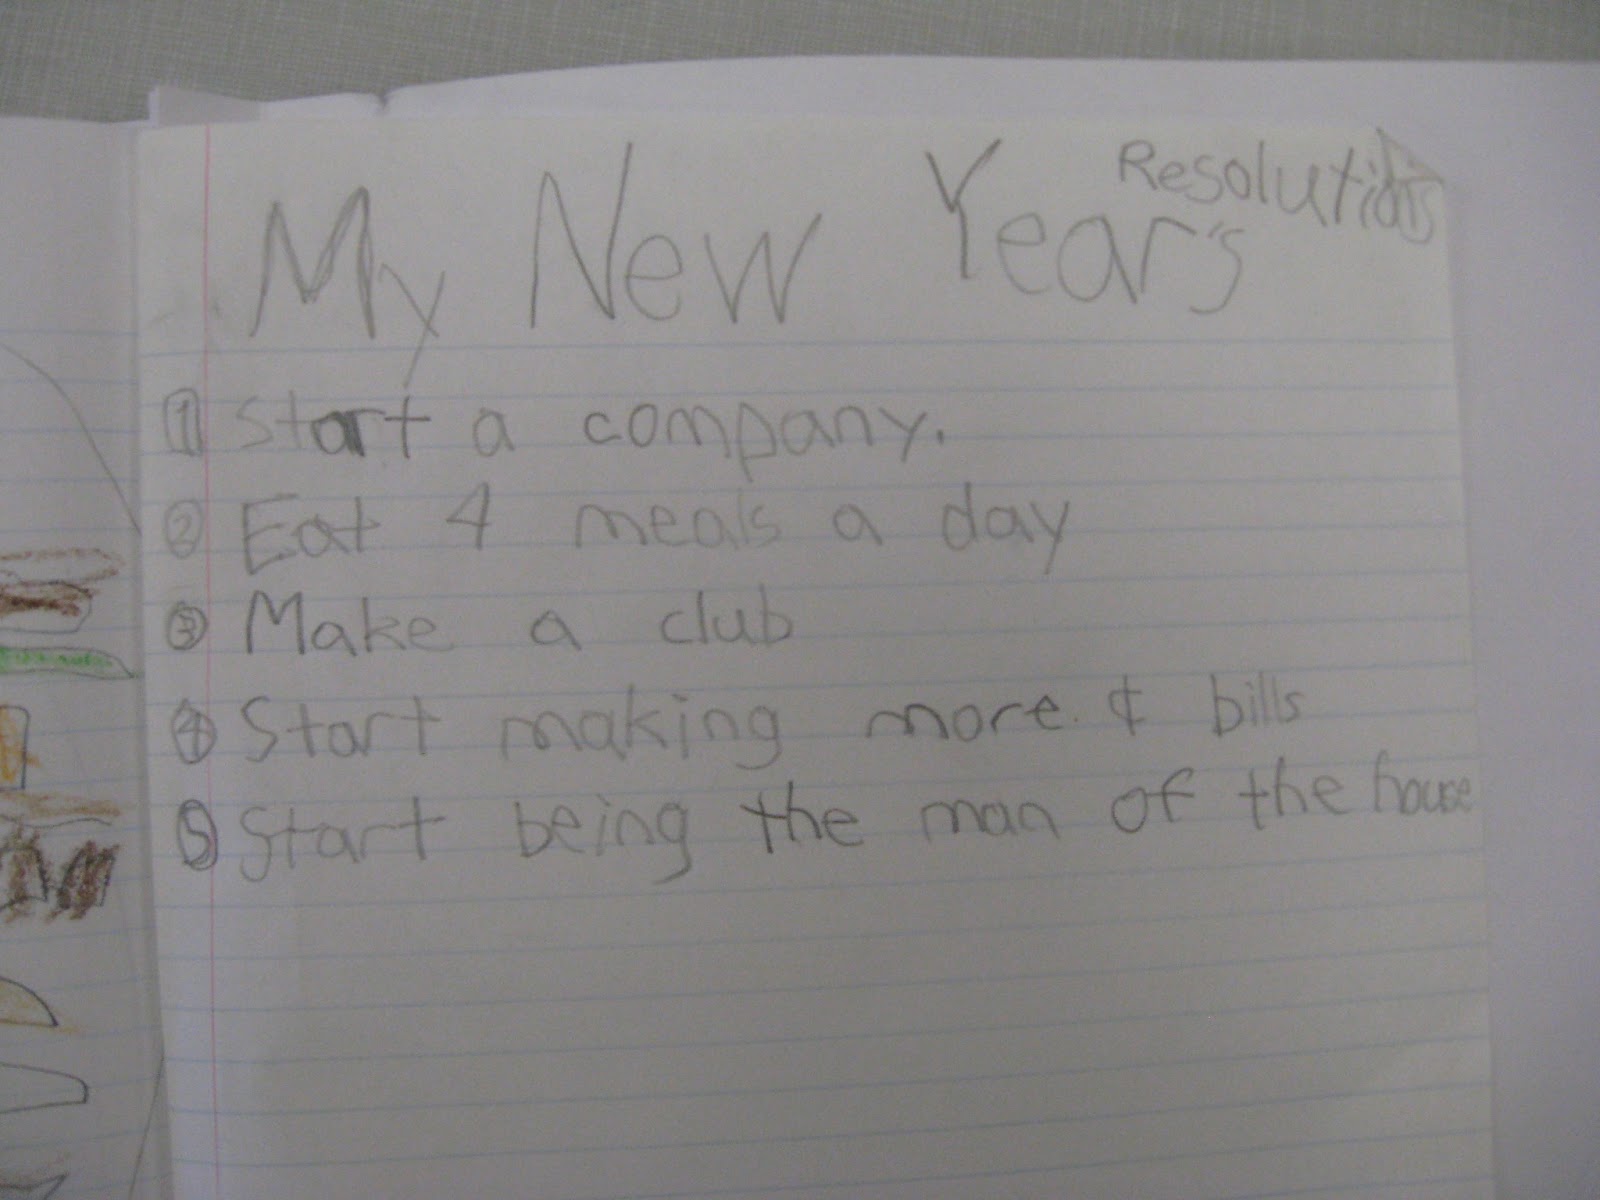 My New Year's Resolutions
1 Start a company.
2 Eat 4 meals a day
3 Make a club
4 Start making more ¢ bills
5 Start being the man of the house